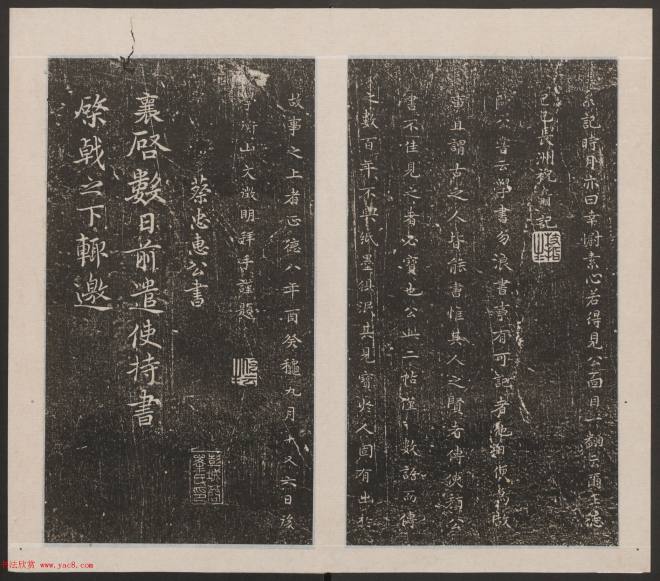 系記時月亦曰幸附素心若得見公面目一翻云爾王
己巳長洲祝記
公嘗云學書勿浪書書有可記者
事且謂古之人皆能書惟其人之賢者傳使顏公
書不佳見之者必寶也公此二帖僅數語而傳
之數百年不與紙墨俱泯其見寶於人固有出於
故事之上者正德八年酉癸龝九月十又六日後
學衡山文徵明拜手謹題
蔡忠惠公書
襄啓數日前遣使持書
棨戟之下輒邀
书法欣赏 www.yac8.com